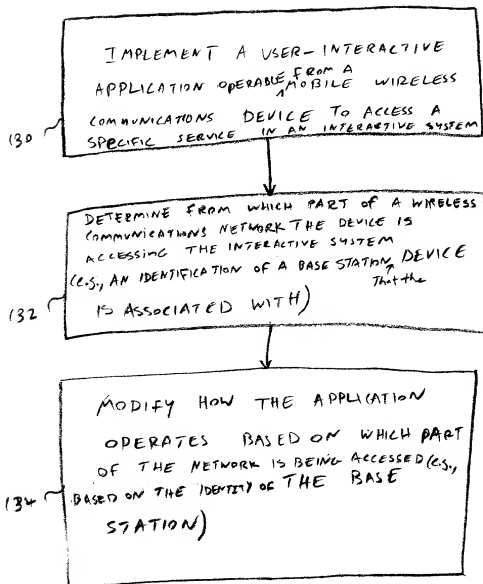 IMPLEMENT A USER-INTERACTIVE
APPLICATION OPERABLE FROM A MOBILE WIRELESS
COMMUNICATIONS DEVICE TO ACCESS A
SPECIFIC SERVICE IN AN INTERACTIVE SYSTEM
130
DETERMINE FROM WHICH PART OF A WIRELESS
COMMUNICATIONS NETWORK THE DEVICE IS
ACCESSING THE INTERACTIVE SYSTEM
(e.g., AN IDENTIFICATION OF A BASE STATION That the DEVICE
IS ASSOCIATED WITH)
132
MODIFY HOW THE APPLICATION
OPERATES BASED ON WHICH PART
OF THE NETWORK IS BEING ACCESSED (e.g.,
BASED ON THE IDENTITY OF THE BASE
STATION)
134